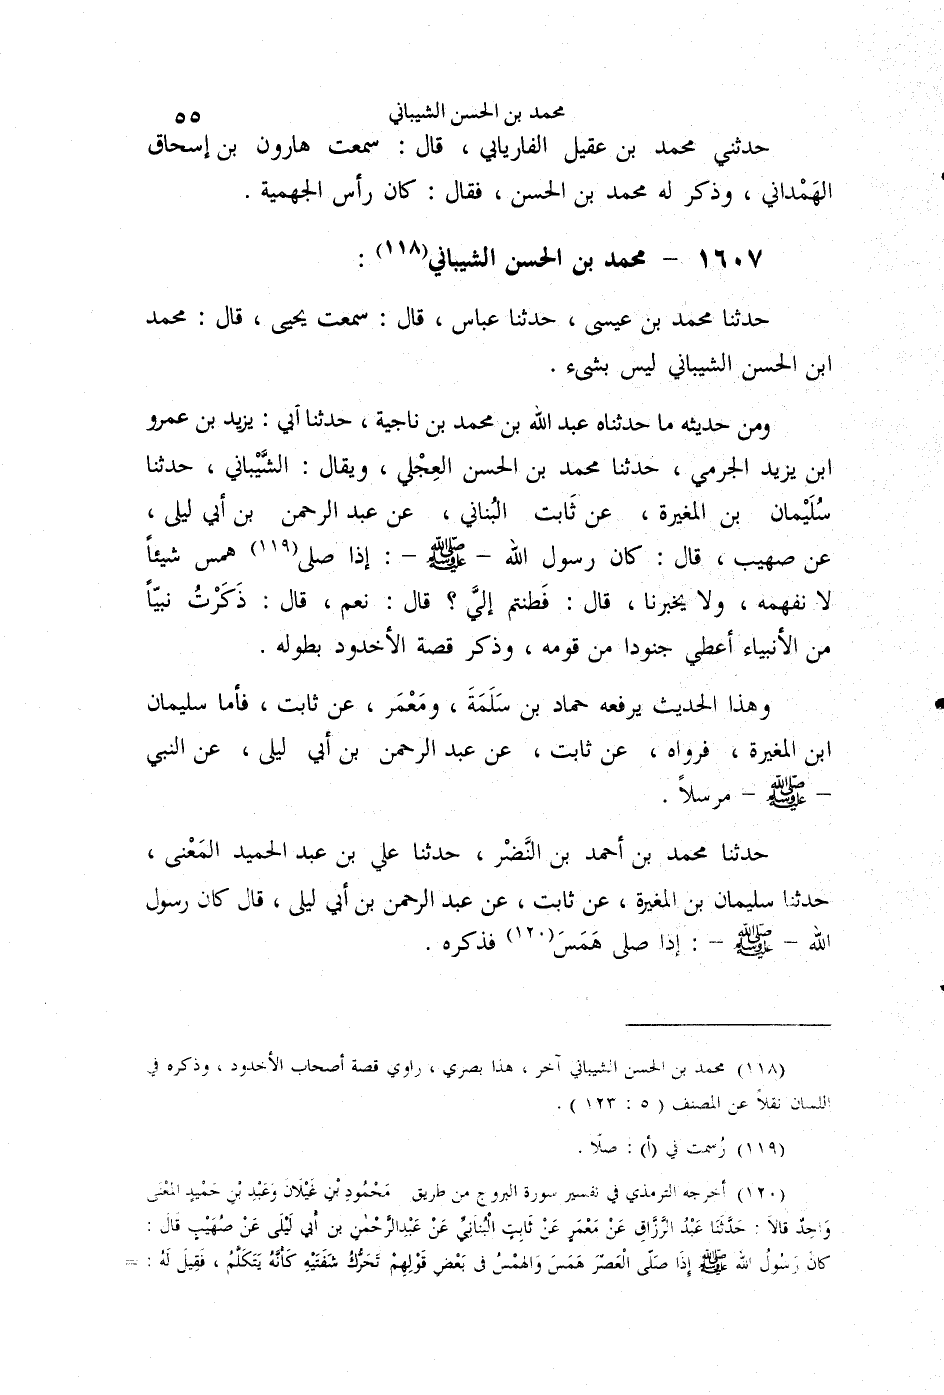 محمد بن الحسن الشيباني ٥٥
حدثني محمد بن عقيل الفاريابي ، قال : سمعت هارون بن إسحاق
الهَمْداني ، وذكر له محمد بن الحسن ، فقال : كان رأس الجهمية .
١٦٠٧ - محمد بن الحسن الشيباني(١١٨) :
حدثنا محمد بن عيسى ، حدثنا عباس ، قال : سمعت يحيى ، قال : محمد
ابن الحسن الشيباني ليس بشىء .
ومن حديثه ما حدثناه عبد الله بن محمد بن ناجية ، حدثنا أبي : يزيد بن عمرو
ابن يزيد الجرمي ، حدثنا محمد بن الحسن العِجْلي ، ويقال : الشَّيْباني ، حدثنا
سُلَيْمان بن المغيرة ، عن ثَابت البُناني ، عن عبد الرحمن بن أبي ليلى ،
عن صهيب ، قال : كان رسول الله - ﷺ - : إذا صلى(١١٩) همس شيئاً
لا نفهمه ، ولا يخبرنا ، قال : فَطنتم إليَّ ؟ قال : نعم ، قال : ذَكَرْتُ نبيّاً
من الأنبياء أعطي جنودا من قومه ، وذكر قصة الأخدود بطوله .
وهذا الحديث يرفعه حماد بن سَلَمَةَ ، ومَعْمَر ، عن ثابت ، فأما سليمان
ابن المغيرة ، فرواه ، عن ثابت ، عن عبد الرحمن بن أبي ليلى ، عن النبي
- ﷺ - مرسلاً .
حدثنا محمد بن أحمد بن النَّضْر ، حدثنا علي بن عبد الحميد المَعْنى ،
حدثنا سليمان بن المغيرة ، عن ثابت ، عن عبد الرحمن بن أبي ليلى ، قال كان رسول
الله - ﷺ - : إذا صلى هَمَسَ(١٢٠) فذكره .
(١١٨) محمد بن الحسن الشيباني آخر ، هذا بصري ، راوي قصة أصحاب الأخدود ، وذكره في
اللسان نقلاً عن المصنف ( ٥ : ١٢٣ ) .
(١١٩) رُسمت في (أ) : صلّا .
(١٢٠) أخرجه الترمذي في تفسير سورة البروج من طريق مَحْمُودِ بْنِ غَيْلَانَ وَعَبْدِ بْنِ حَمْيدٍ المَعْنَى
وَاحِدٌ قَالَا : حَدَّثَنَا عَبْدُ الرَّزَّاقِ عَنْ مَعْمَرٍ عَنْ ثَابِتٍ الْبُنَانِيِّ عَنْ عَبْدِالرَّحْمٰنِ بن أَبي لَيْلَى عَنْ صُهَيْبٍ قَالَ :
كَانَ رَسُولُ الله ﷺ إِذَا صَلَّى الْعَصْرَ هَمَسَ وَالهَمْسُ فى بَعْضِ قَوْلِهِمْ تَحَرُّكُ شَفَتَيْهِ كَأَنَّهُ يَتَكَلَّمُ ، فَقِيلَ لَهُ : =